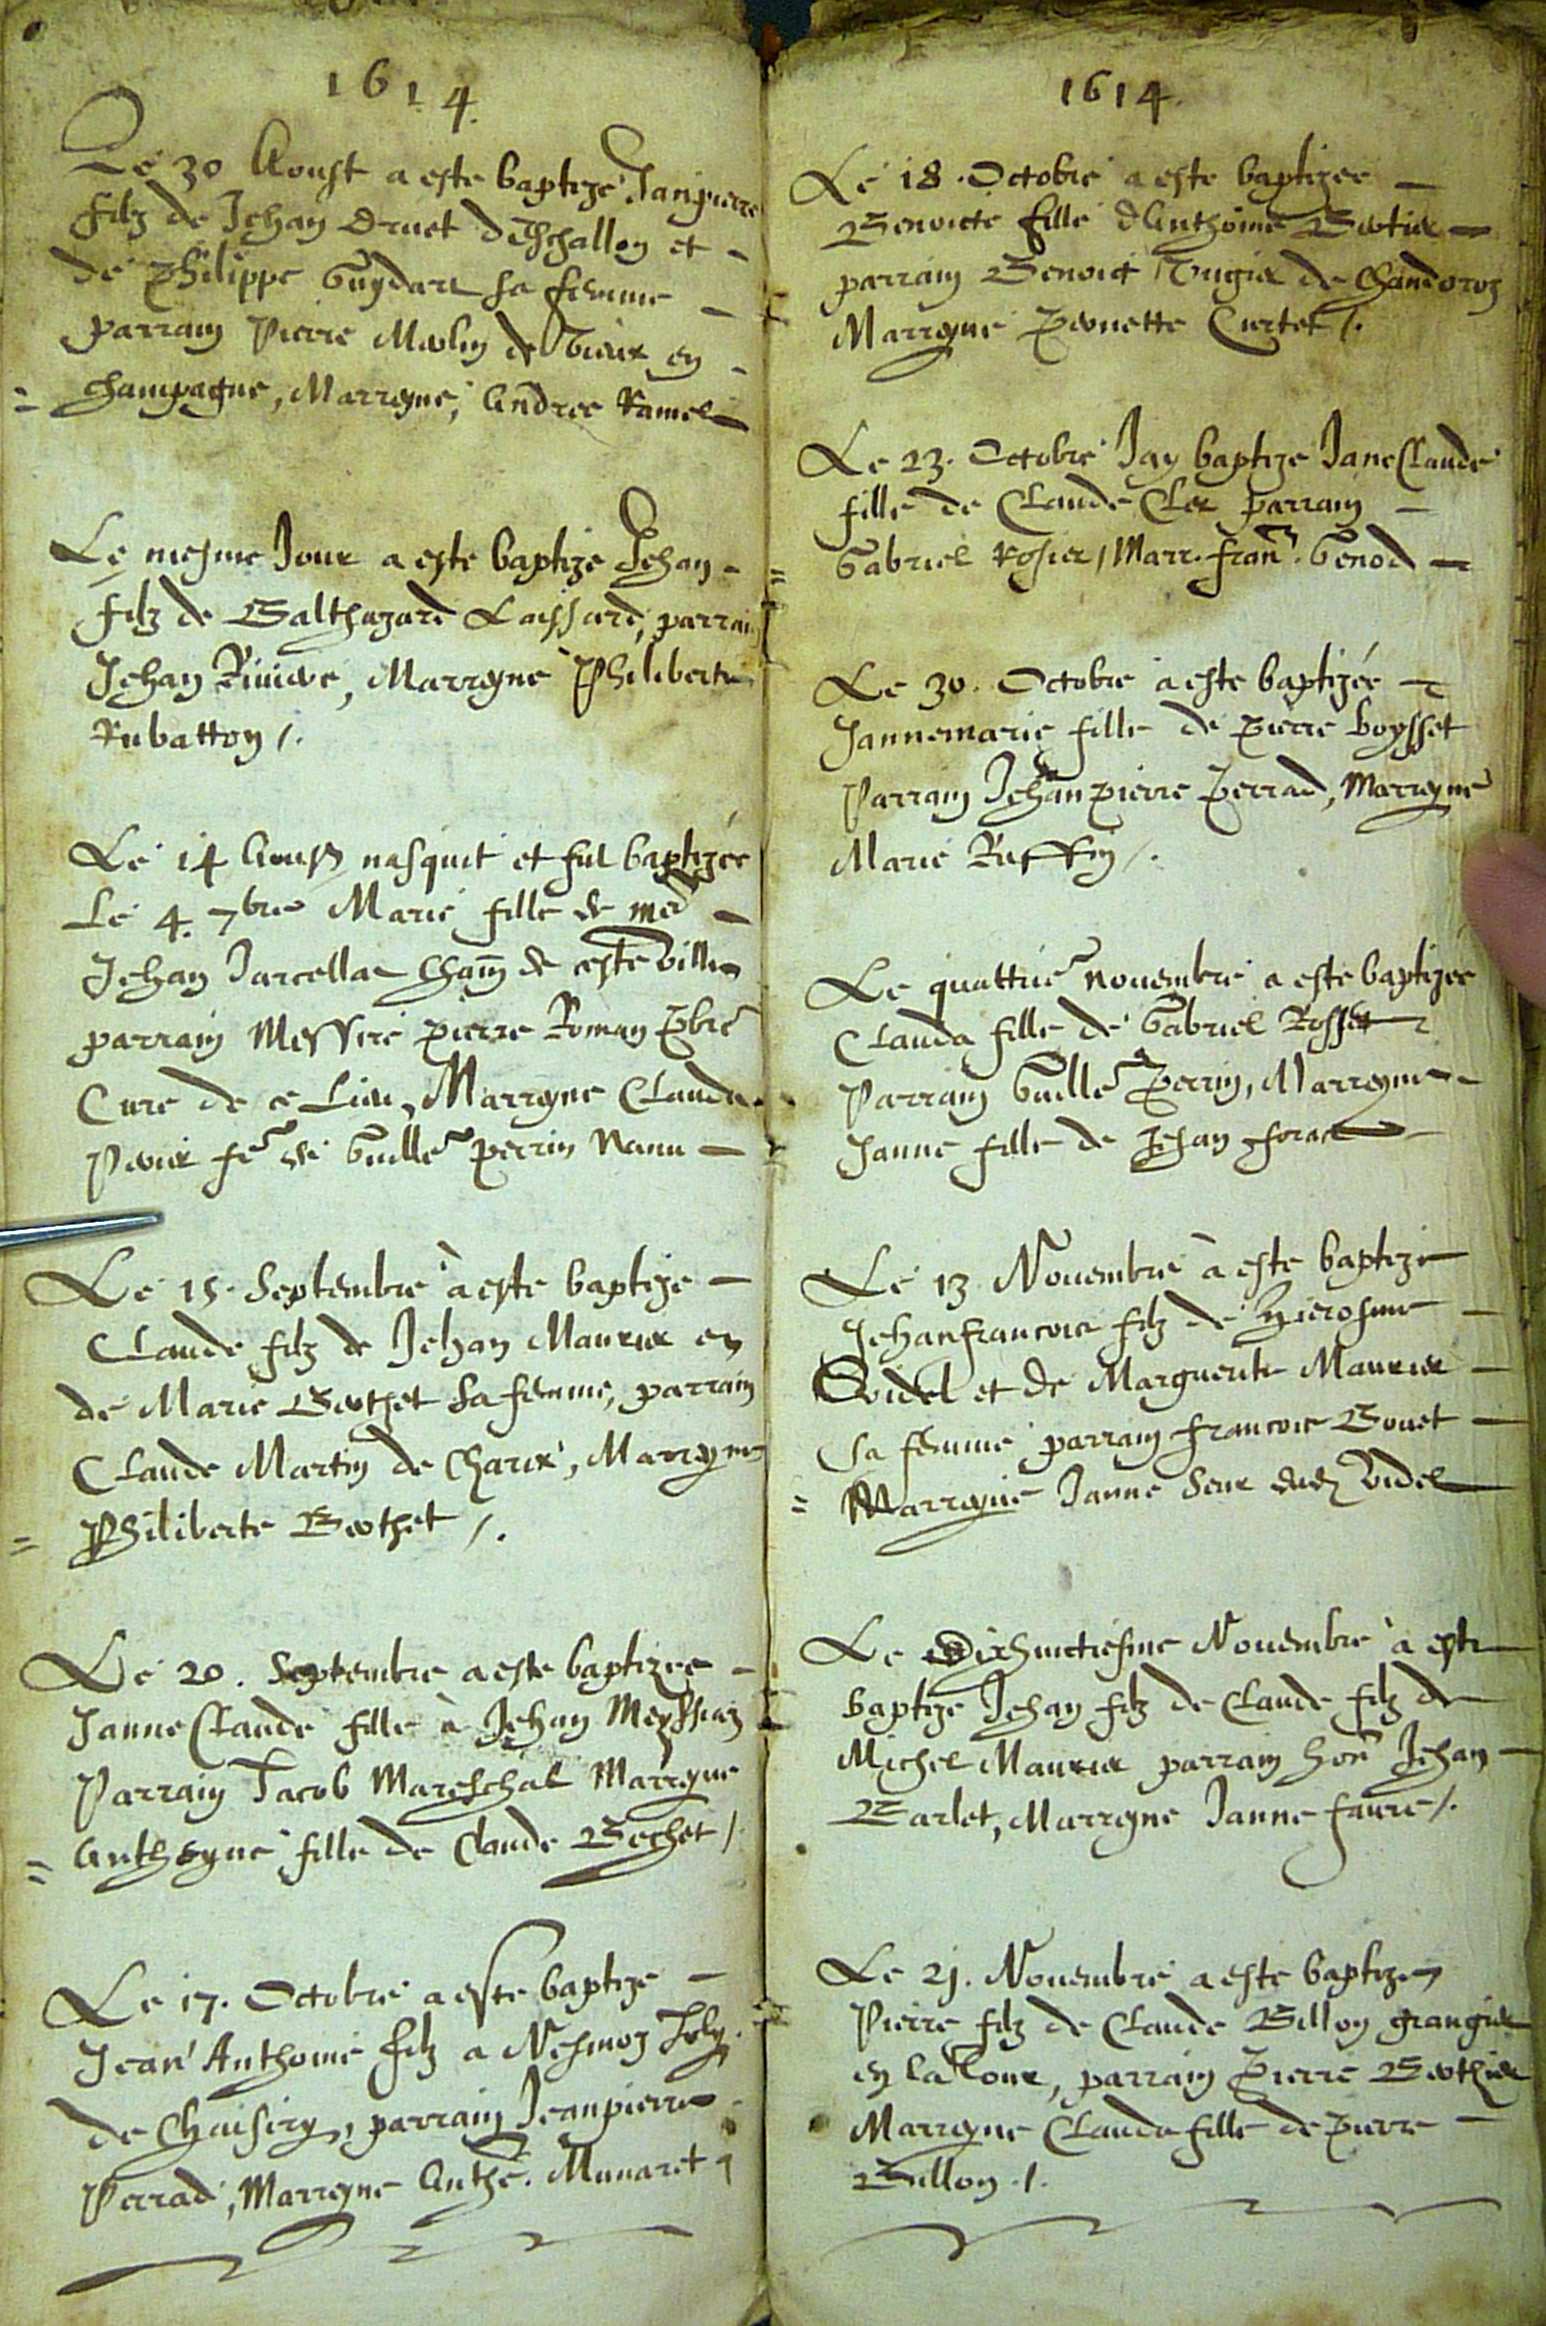 1614.
Le 30 Aoust a este baptize Janpierre
filz de Jehan Druet d'Eschallon et
de Philippe Guydard sa femme
parrain Pierre Merlin de Vieux en
champagne, Marreyne, Andree Ramel
Le mesme Jour a este baptize Jehan
filz de Balthazard Laissard, parrain
Jehan Riviere, Marreyne Philiberte
Rubatton /.
Le 14 Aoust nasquit et fut baptizée
Le 4. 7bre Marie fille de
Jehan Jarcellat de ceste ville
parrain Messire pierre Roman Pbre
Cure de ce Lieu, Marreyne Clauda
fe de Guille perrin Nanu
Le 15. Septembre à este baptize
Claude filz de Jehan Maurier en
de Marie Berthet sa femme, parrain
Claude Martin de Charix, Marreyne
Philiberte Berthet /.
Le 20. Septembre a este baptizee
JanneClaude fille à Jehan Meyssiaz
Parrain Jacob Mareschal Marreyne
Anthoyne fille de Claude Bechet /.
Le 17. Octobre a este baptize
Jean Anthoine filz a Nesmoz Joly
de Chaisiry, parrain Jeanpierre
Perrad, Marreyne Anthe. Munaret
1614.
Le 18. Octobre a este baptizee
Benoicte fille d'Anthoine Bertier
parrain Benoict Tugier de Chandoroz
Marreyne Pernette Curtet /.
Le 23. Octobre Jay baptize JaneClaude
fille de Claude Cler parrain
Gabriel Rosier / Marr. Fran. Genod
Le 30. Octobre a este baptizée
Jannemarie fille de pierre boysset
Parrain Jehanpierre Perrad, Marreyne
Marie Ruffin /.
Le quattrie novembre a este baptizée
Clauda fille de Gabriel Rosset
Parrain Guille Perrin, Marreyne
Janne fille de Jehan forat
Le 13 Novembre à este baptize
Jehanfrancois filz de Hierosme
Videl et de Marguerite Maurier
sa femme parrain francois Bonet
Marreyne Janne seur dud Videl
Le Dixhuictiesme Novembre à este
baptize Jehan filz de Claude filz de
Michel Maurier parrain hon Jehan
Earlet, Marreyne Janne favre /.
Le 21. Novembre a este baptize
Pierre filz de Claude Billon grangier
en la Tour, parrain Pierre Berthier
Marreyne Clauda fille de pierre
Billon ./.